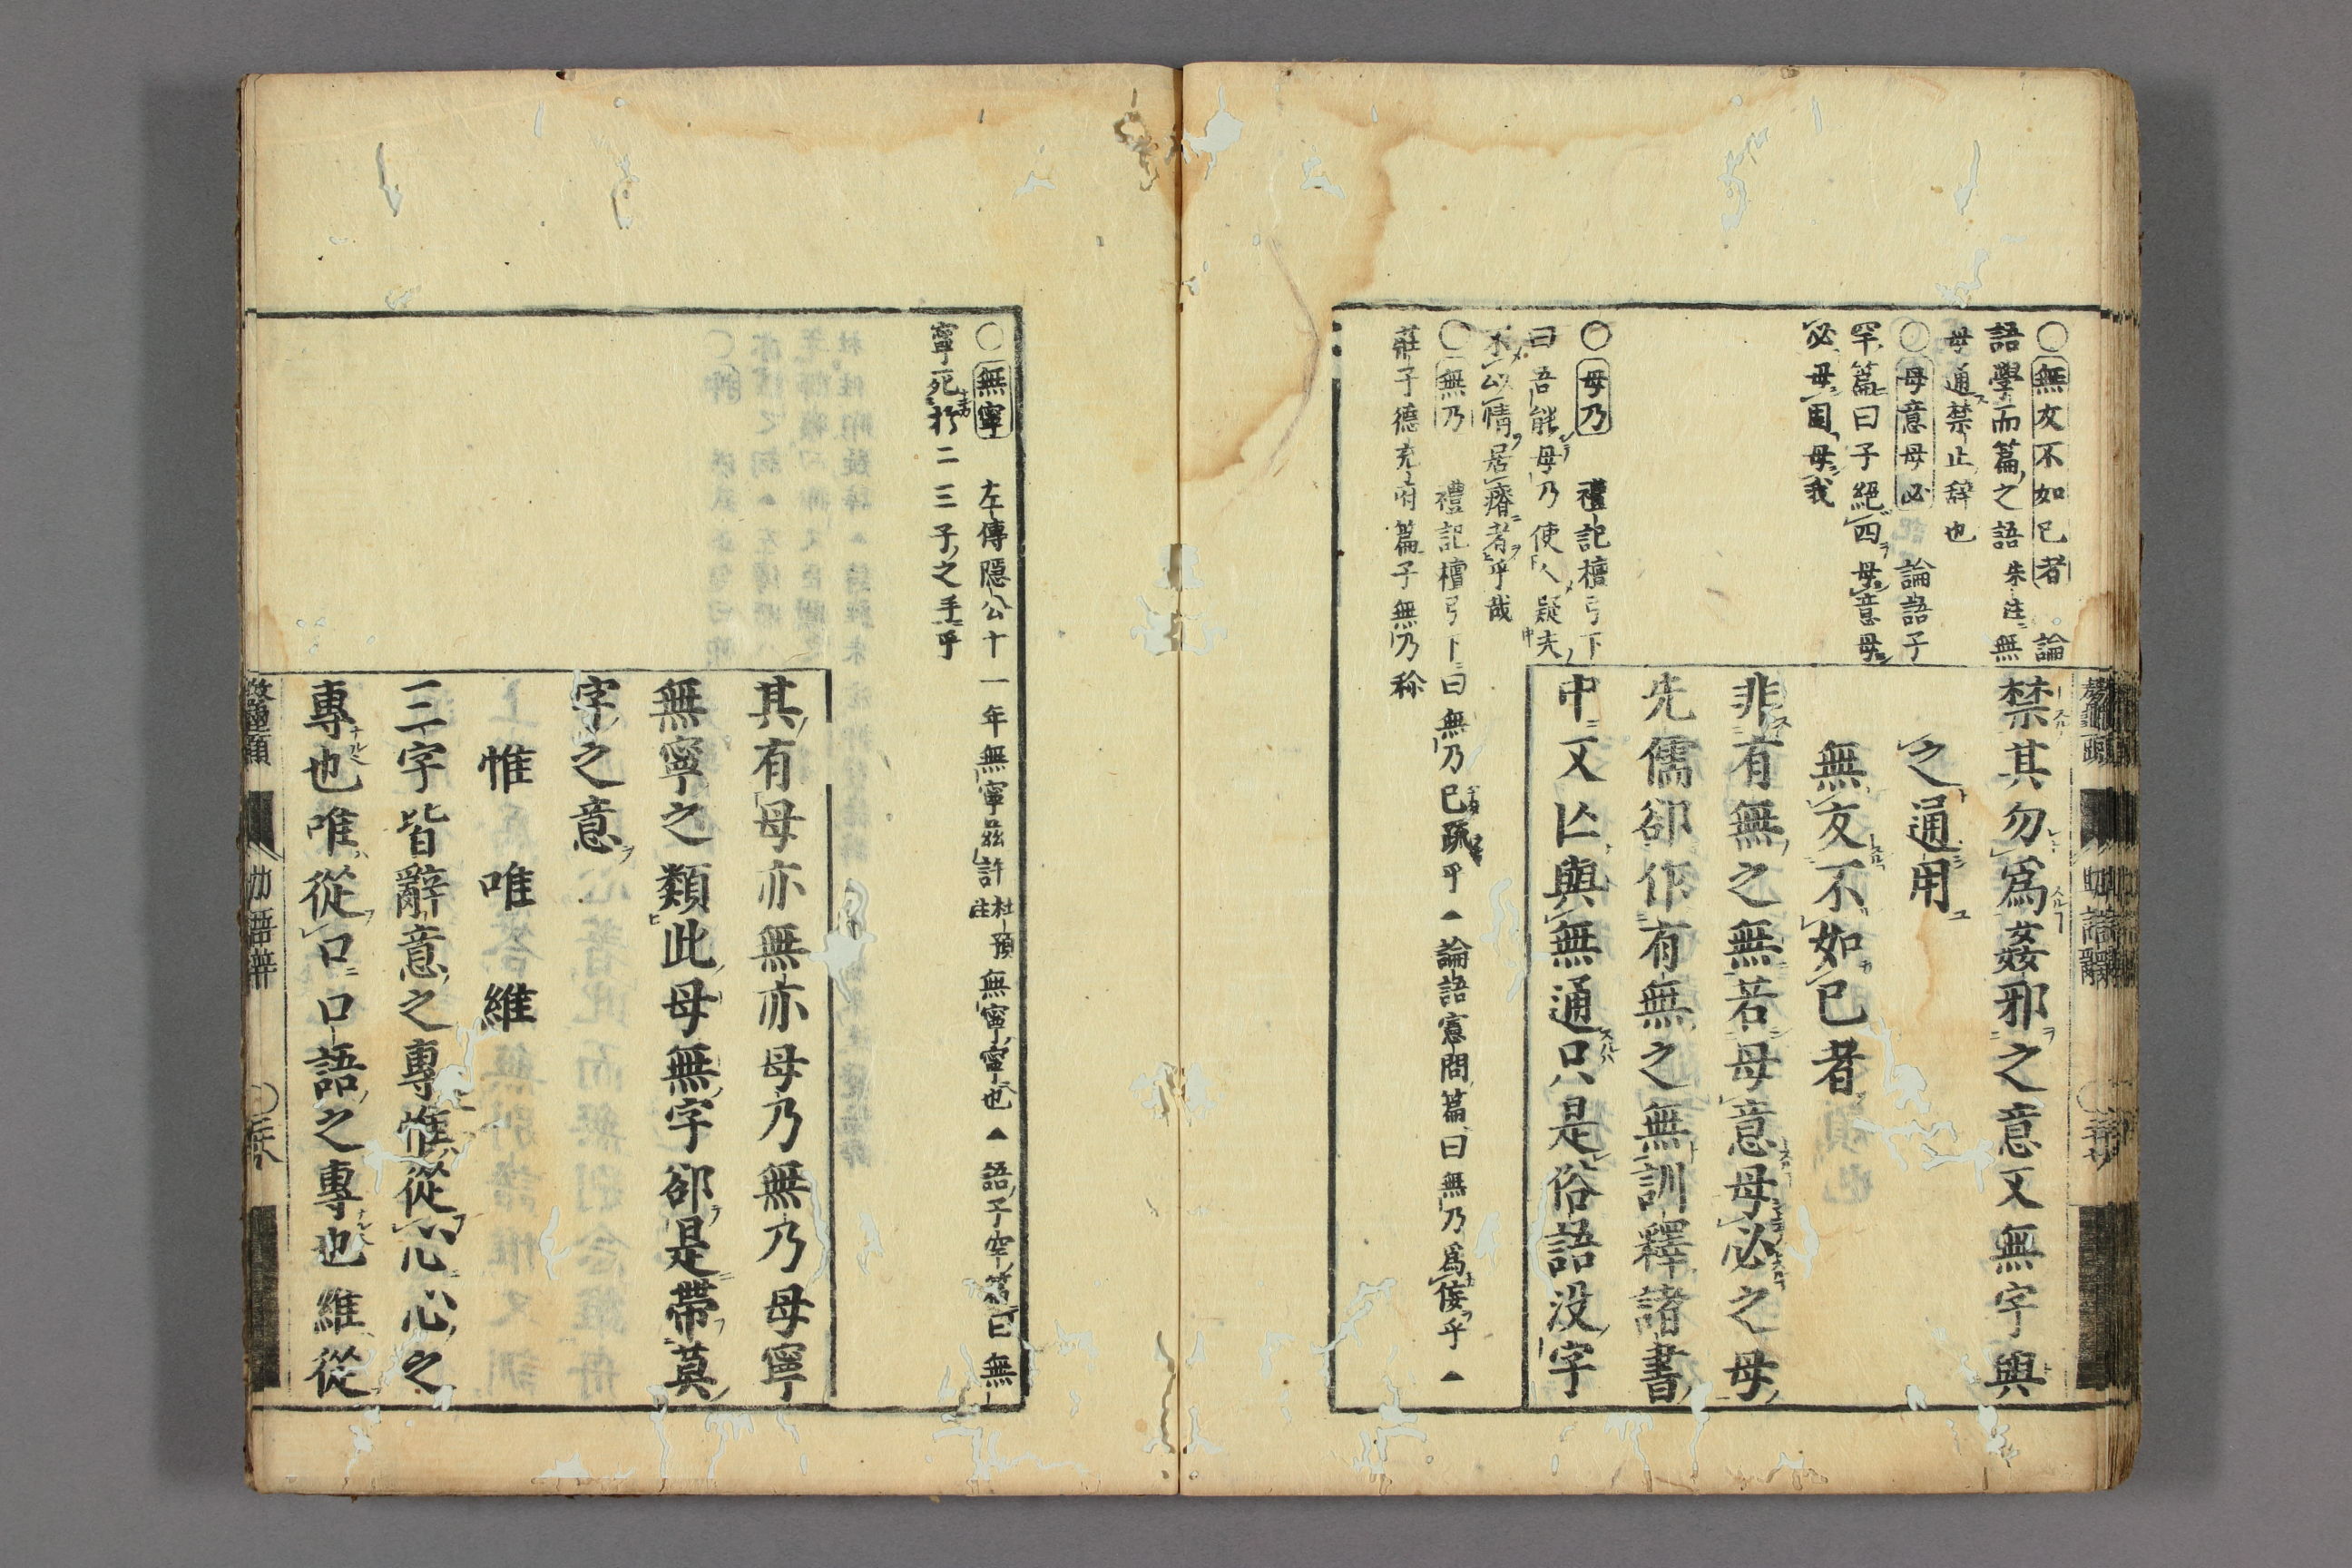 ○無友不如已者 論
語學而篇之語 朱注無
毋通禁止辞也
○毋意毋必 論語子
罕篇曰子絕四毋意毋
必毋固毋我
○毋乃 禮記檀弓下
曰吾能毋乃使人疑夫
不以情居瘠者乎哉
○無乃 禮記檀弓下曰無乃已疏乎▲論語憲問篇曰無乃爲佞乎▲
莊子德充府篇子無乃称
禁其勿爲姦邪之意又無字與
之通用
無友不如已者
非有無之無若毋意毋必之毋
先儒卻作有無之無訓釋諸書
中又亾與無通只是俗語没字
○無寧 左傳隱公十一年無寧茲許 杜預注 無寧寧也▲語子罕篇曰無
寧死於二三子之手乎
其有毋亦無亦毋乃無乃毋寧
無寧之類此毋無字卻是帶莫
字之意
惟 唯 維
三字皆辭意之專惟從心心之
專也唯從口口語之專也維從